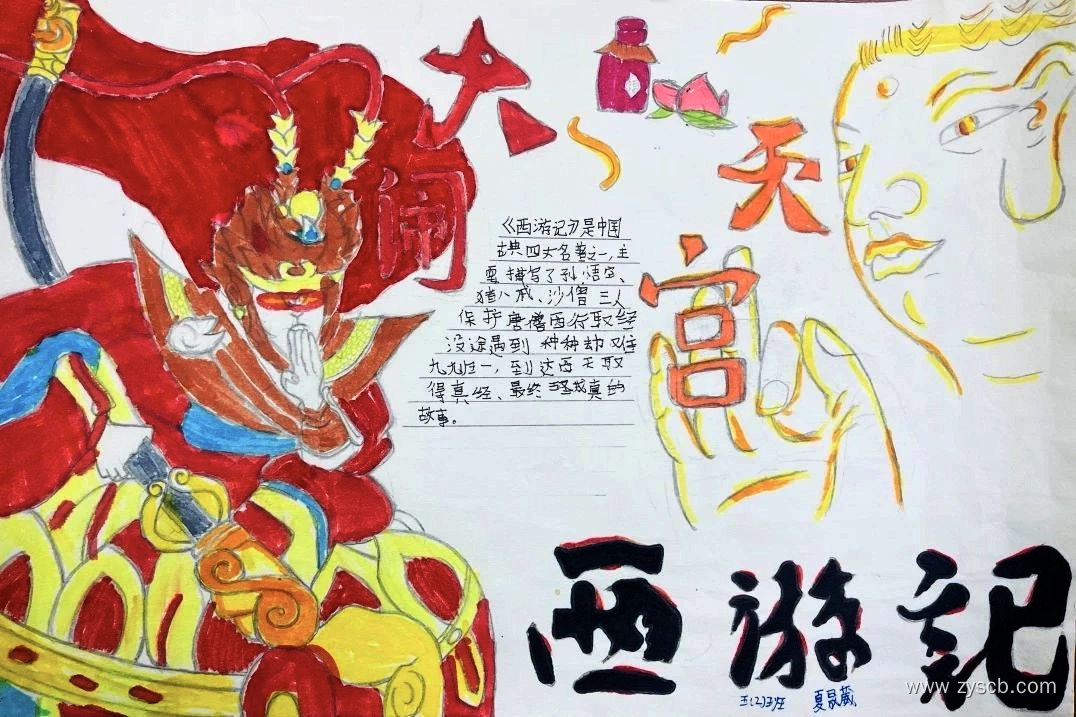 闹
大
天
宫
《西游记》是中国
古典四大名著之一,主
要描写了孙悟空、
猪八戒、沙僧三人
保护唐僧西行取经
沿途遇到种种劫难
九九归一,到达西天取
得真经、最终
真的
故事。
西游記
五(2)班 夏晟葳
www.zyscb.com